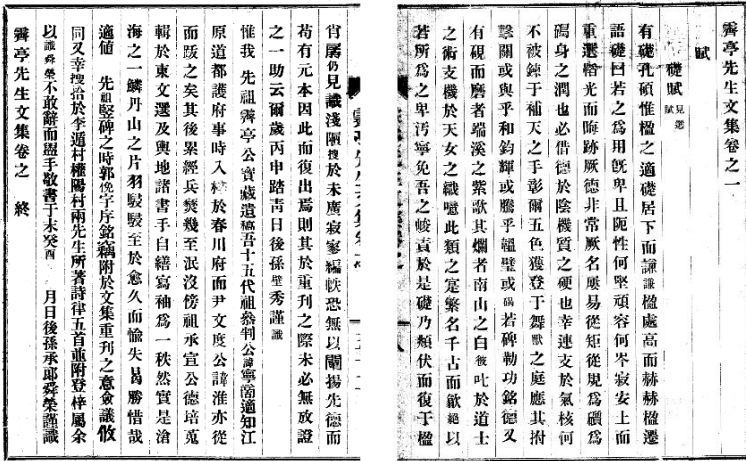 霽亭先生文集卷之一
賦
礎賦 見選賦
有礎孔碩惟楹之適礎居下而謙謙楹處高而赫赫楹遷
語礎曰若之爲用旣卑且阨性何堅頑容何岑寂安上而
重遷韜光而晦跡厥德非常厥名屢易從矩從規爲礩爲
磶身之潤也必借德於陰機質之硬也幸連支於氣核何
不被鍊于補天之手彰爾五色獲登于舞獸之庭應其拊
擊關或與乎和鈞輝或騰乎韞璧或碣若碑勒功銘德又
有硯而磨者端溪之紫歌其爛者南山之白彼叱於道士
之術支機於天女之織噫此類之寔繁名千古而歆絶以
若所爲之卑汚寧免吾之峻責於是礎乃類伏而復于楹
肖孱仍見識淺陋搜於未廣寂寥編帙恐無以闡揚先德而
苟有元本因此而復出焉則其於重刊之際未必無放證
之一助云爾歲丙申踏靑日後孫壁秀謹識
惟我 先祖霽亭公實蔵遺稿吾十五代祖叅判公諱寧啇適知江
原道都護府事時入梓於春川府而尹文度公諱淮亦從
而跋之矣其後累經兵燹幾至泯沒傍祖承宣公德培蒐
輯於東文選及輿地諸書手自繕寫袖爲一秩然實是滄
海之一鱗丹山之片羽駸駸至於愈久而愉失曷勝惜哉
適値 先祖竪碑之時郭俛宇序銘竊附於文集重刊之意僉議攸
同又幸搜拾於李遁村權陽村兩先生所著詩律五首並附登梓屬余
以識舜榮不敢辭而盥手敬書于末癸酉 月日後孫承郞舜榮謹識
霽亭先生文集卷之 終